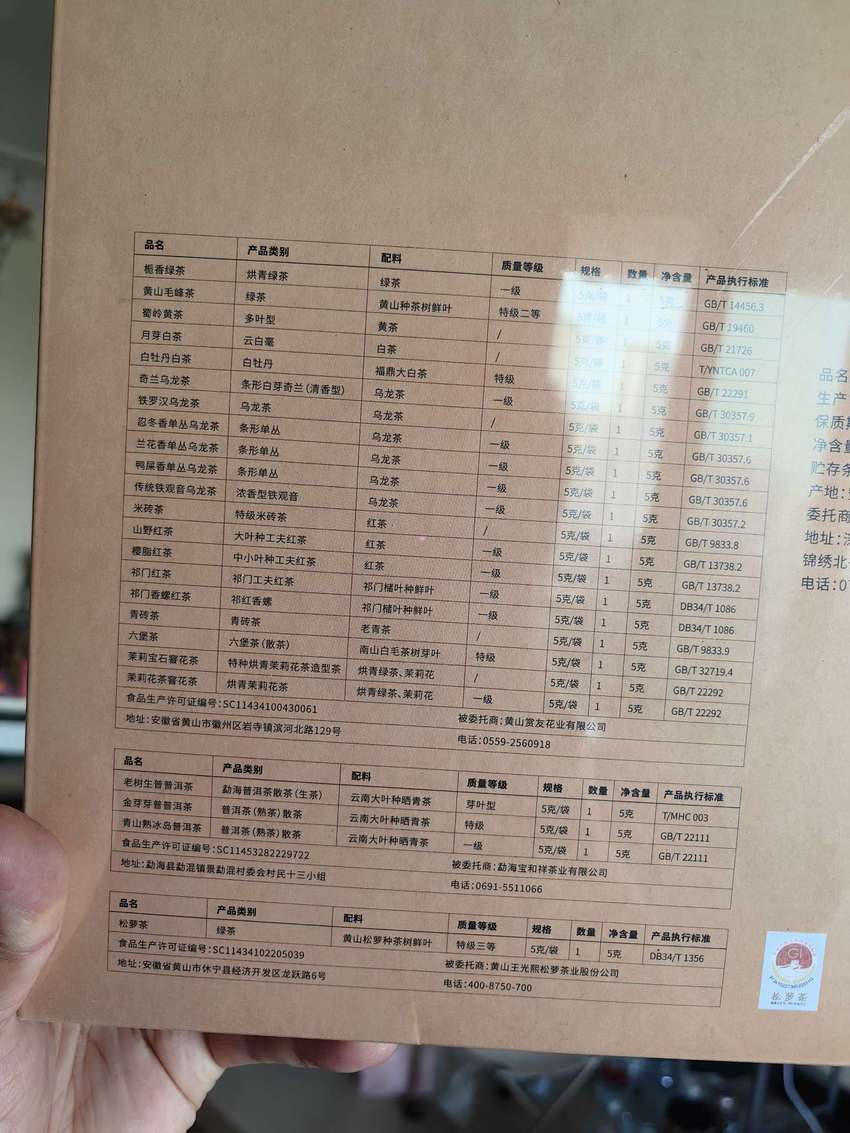 品名 产品类别 配料 质量等级 规格 数量 净含量 产品执行标准
栀香绿茶 烘青绿茶 绿茶 一级 5克/袋 1 5克 GB/T 14456.3
黄山毛峰茶 绿茶 黄山种茶树鲜叶 特级二等 5克/袋 1 5克 GB/T 19460
蜀岭黄茶 多叶型 黄茶 / 5克/袋 1 5克 GB/T 21726
月芽白茶 云白毫 白茶 / 5克/袋 1 5克 T/YNTCA 007
白牡丹白茶 白牡丹 福鼎大白茶 特级 5克/袋 1 5克 GB/T 22291
奇兰乌龙茶 条形白芽奇兰(清香型) 乌龙茶 一级 5克/袋 1 5克 GB/T 30357.9
铁罗汉乌龙茶 乌龙茶 乌龙茶 / 5克/袋 1 5克 GB/T 30357.1
忍冬香单丛乌龙茶 条形单丛 乌龙茶 一级 5克/袋 1 5克 GB/T 30357.6
兰花香单丛乌龙茶 条形单丛 乌龙茶 一级 5克/袋 1 5克 GB/T 30357.6
鸭屎香单丛乌龙茶 条形单丛 乌龙茶 一级 5克/袋 1 5克 GB/T 30357.6
传统铁观音乌龙茶 浓香型铁观音 乌龙茶 一级 5克/袋 1 5克 GB/T 30357.2
米砖茶 特级米砖茶 红茶 / 5克/袋 1 5克 GB/T 9833.8
山野红茶 大叶种工夫红茶 红茶 一级 5克/袋 1 5克 GB/T 13738.2
樱脂红茶 中小叶种工夫红茶 红茶 一级 5克/袋 1 5克 GB/T 13738.2
祁门红茶 祁门工夫红茶 祁门槠叶种鲜叶 一级 5克/袋 1 5克 DB34/T 1086
祁门香螺红茶 祁红香螺 祁门槠叶种鲜叶 一级 5克/袋 1 5克 DB34/T 1086
青砖茶 青砖茶 老青茶 / 5克/袋 1 5克 GB/T 9833.9
六堡茶 六堡茶(散茶) 南山白毛茶树芽叶 特级 5克/袋 1 5克 GB/T 32719.4
茉莉宝石窨花茶 特种烘青茉莉花茶造型茶 烘青绿茶、茉莉花 / 5克/袋 1 5克 GB/T 22292
茉莉花茶窨花茶 烘青茉莉花茶 烘青绿茶、茉莉花 一级 5克/袋 1 5克 GB/T 22292
食品生产许可证编号:SC11434100430061 被委托商:黄山赏友花业有限公司
地址:安徽省黄山市徽州区岩寺镇滨河北路129号 电话:0559-2560918
品名 产品类别 配料 质量等级 规格 数量 净含量 产品执行标准
老树生普普洱茶 勐海普洱茶散茶(生茶) 云南大叶种晒青茶 芽叶型 5克/袋 1 5克 T/MHC 003
金芽芽普普洱茶 普洱茶(熟茶)散茶 云南大叶种晒青茶 特级 5克/袋 1 5克 GB/T 22111
青山熟冰岛普洱茶 普洱茶(熟茶)散茶 云南大叶种晒青茶 一级 5克/袋 1 5克 GB/T 22111
食品生产许可证编号:SC11453282229722 被委托商:勐海宝和祥茶业有限公司
地址:勐海县勐混镇景勐混村委会村民十三小组 电话:0691-5511066
品名 产品类别 配料 质量等级 规格 数量 净含量 产品执行标准
松萝茶 绿茶 黄山松萝种茶树鲜叶 特级三等 5克/袋 1 5克 DB34/T 1356
食品生产许可证编号:SC11434102205039 被委托商:黄山王光熙松萝茶业股份公司
地址:安徽省黄山市休宁县经济开发区龙跃路6号 电话:400-8750-700
品名
生产
保质期
净含量
贮存条
产地:
委托商
地址:
锦绣北
电话:07
GI
松萝茶